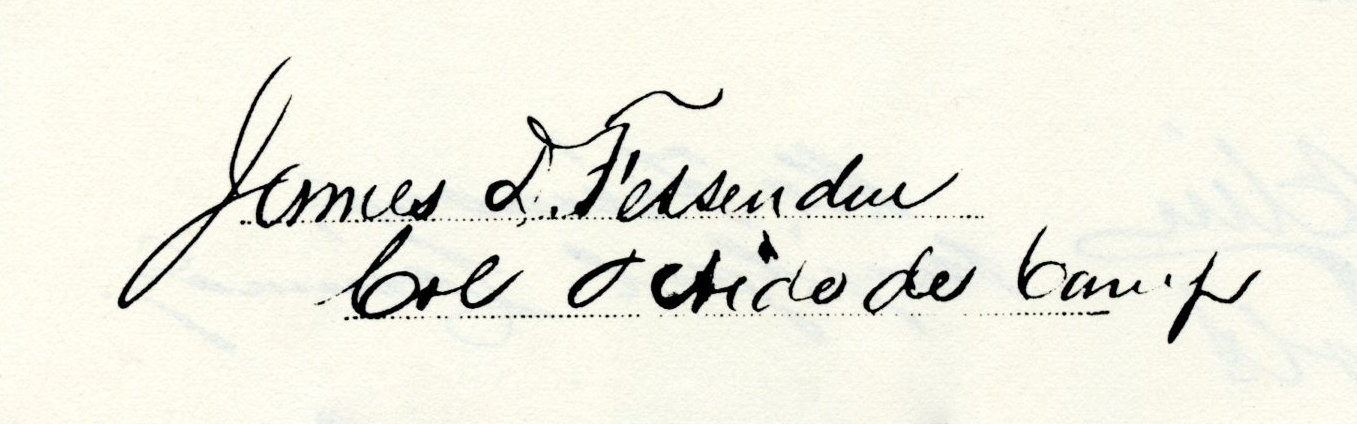 James D. Fessenden
Col & Aide de Camp